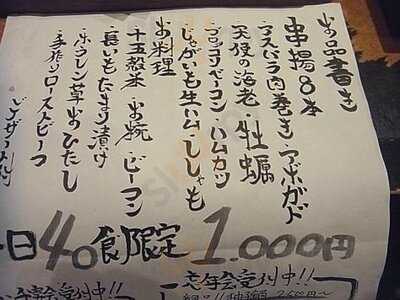 お品書き
串揚8本
・アスパラ肉巻き・アボガド
・天使の海老・牡蠣
・ブッコリベーコン・ハムカツ
・じゃがいも生ハム・ししゃも
お料理
・十五穀米・お椀・ビーフン
・長いもたまり漬け
・ホウレン草おひたし
・手作りローストビーフ
一日40食限定
1.000円
忘年会受付中!!
忘年会受付中!!